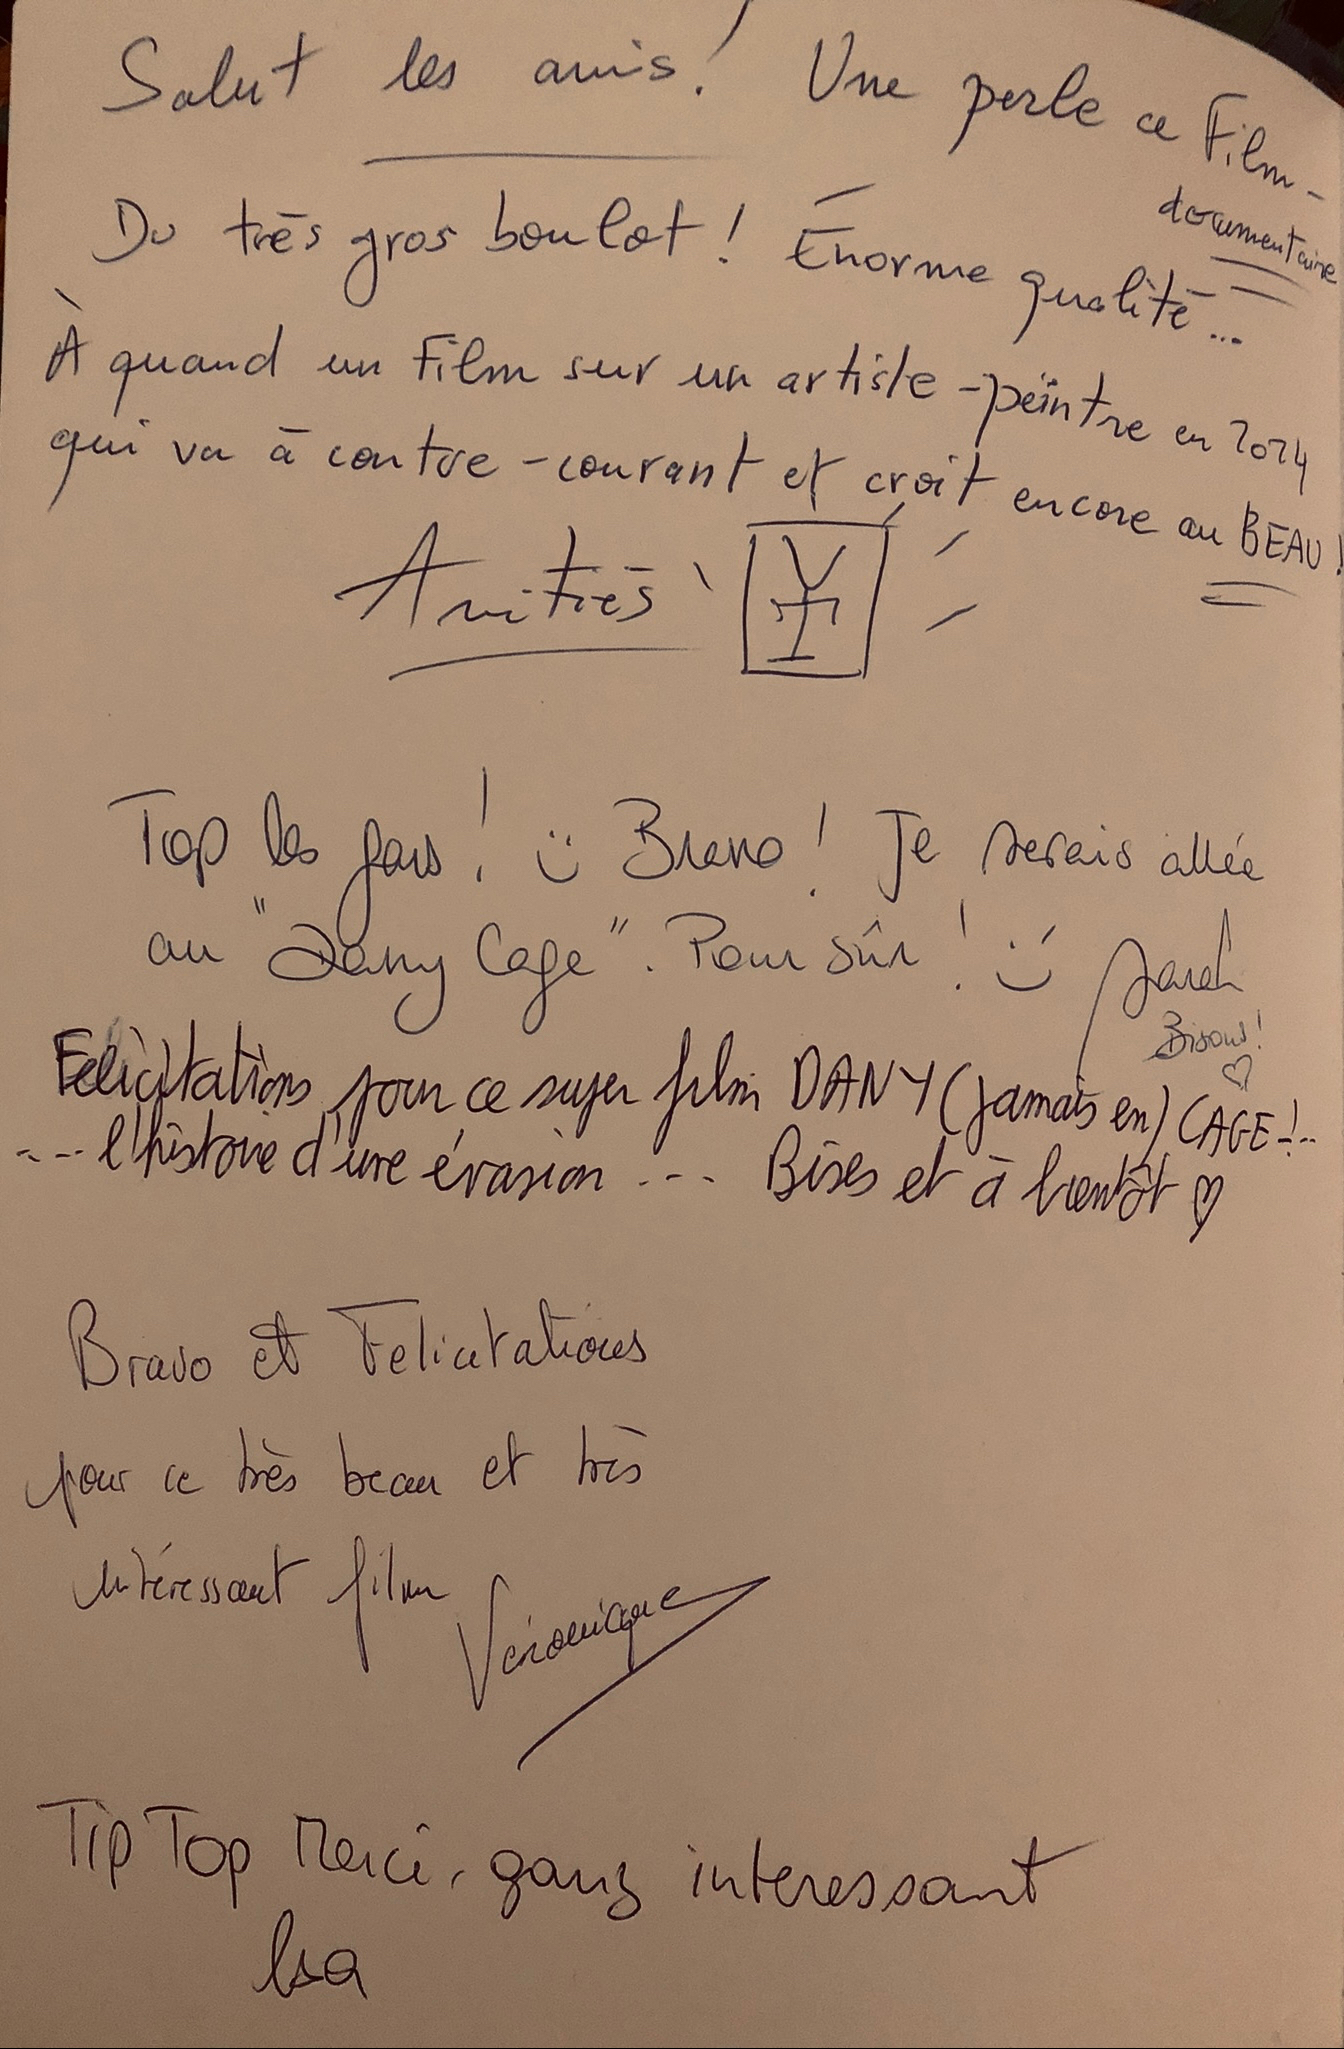 Salut les amis! Une perle ce Film-
documentaire
Du très gros boulot! Énorme qualité...
À quand un Film sur un artiste-peintre en 2024
qui va à contre-courant et croit encore au BEAU!
Amitiés
Top les gars! :) Bravo! Je serais allée
au "Dany Cage". Pour sûr! :) Sarah
Bisous! ♡
Félicitations pour ce super film DANY (jamais en) CAGE!..
... l'histoire d'une évasion ... Bises et à bientôt ♡
Bravo et Felicitations
pour ce très beau et très
intéressant film Véronique
Tip Top Merci, ganz interessant
Isa